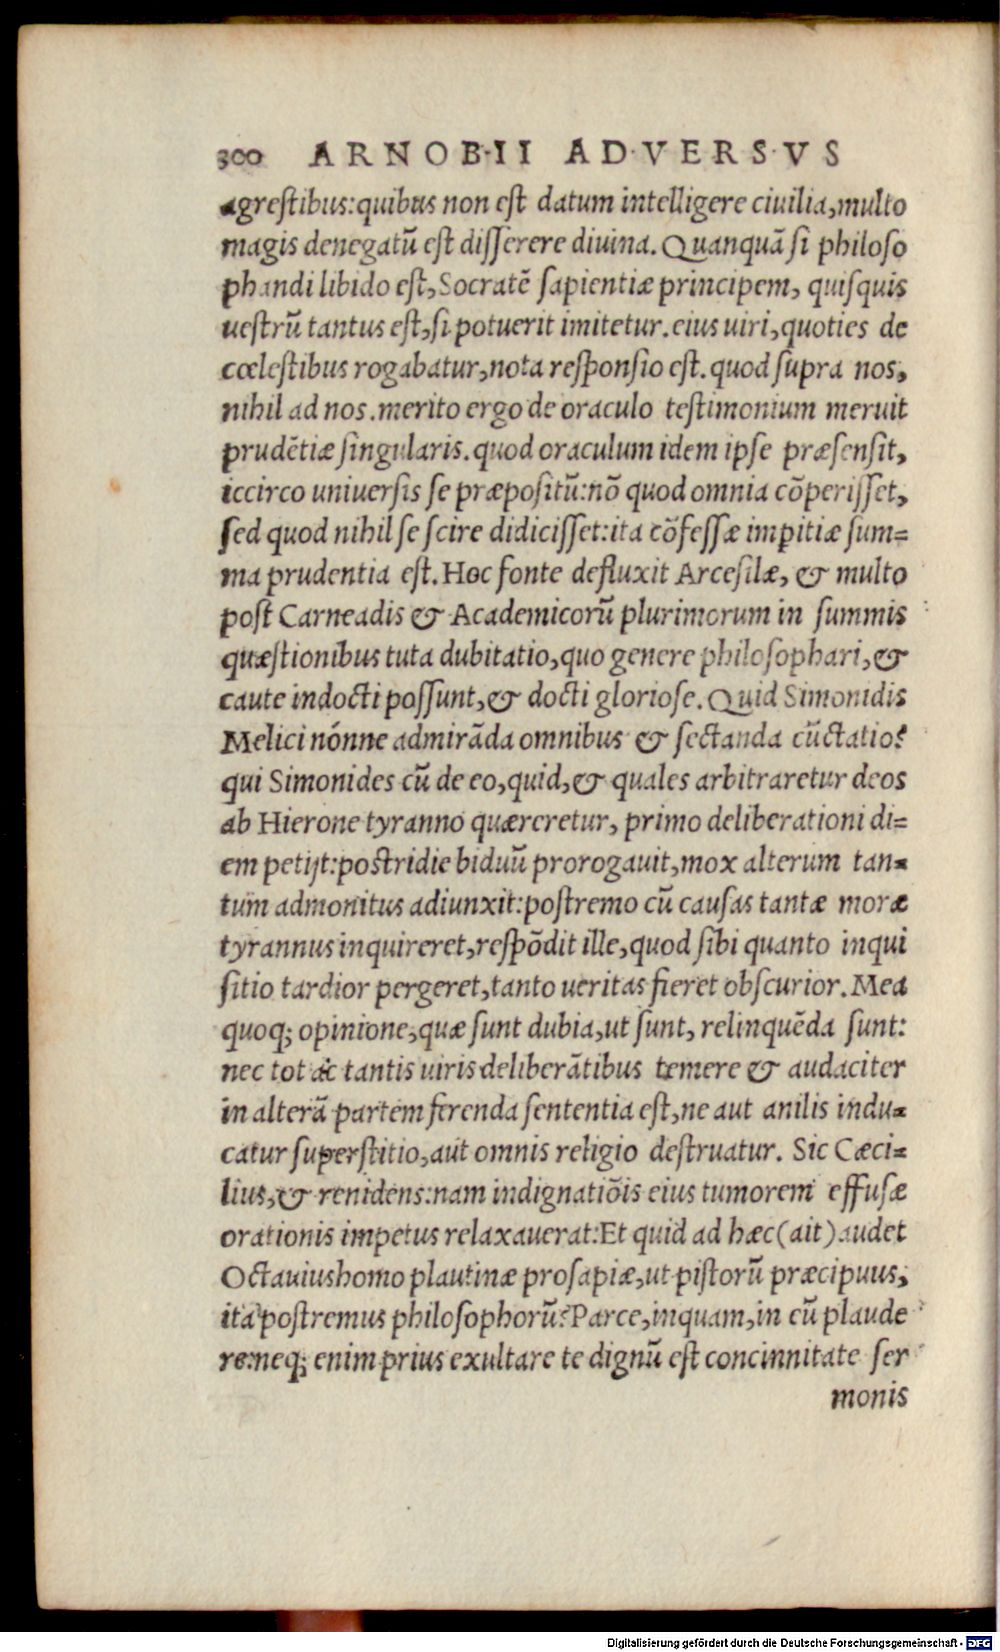 300 ARNOBII ADVERSVS
agrestibus: quibus non est datum intelligere ciuilia, multo
magis denegatū est disserere diuina. Quanquā si philoso
phandi libido est, Socratē sapientiæ principem, quisquis
uestrū tantus est, si potuerit imitetur. eius uiri, quoties de
cœlestibus rogabatur, nota responsio est. quod supra nos,
nihil ad nos. merito ergo de oraculo testimonium meruit
prudētiæ singularis. quod oraculum idem ipse præsensit,
iccirco uniuersis se præpositū: nō quod omnia cōperisset,
sed quod nihil se scire didicisset: ita cōfessæ impitiæ sum=
ma prudentia est. Hoc fonte defluxit Arcesilæ, & multo
post Carneadis & Academicorū plurimorum in summis
quæstionibus tuta dubitatio, quo genere philosophari, &
caute indocti possunt, & docti gloriose. Quid Simonidis
Melici nónne admirāda omnibus & sectanda cūctatio?
qui Simonides cū de eo, quid, & quales arbitraretur deos
ab Hierone tyranno quæreretur, primo deliberationi di=
em petijt: postridie biduū prorogauit, mox alterum tan=
tum admonitus adiunxit: postremo cū causas tantæ moræ
tyrannus inquireret, respōdit ille, quod sibi quanto inqui
sitio tardior pergeret, tanto ueritas fieret obscurior. Mea
quoq; opinione, quæ sunt dubia, ut sunt, relinquēda sunt:
nec tot ac tantis uiris deliberātibus temere & audaciter
in alterā partem ferenda sententia est, ne aut anilis indu=
catur superstitio, aut omnis religio destruatur. Sic Cæci=
lius, & renidens: nam indignatiōis eius tumorem effusæ
orationis impetus relaxauerat: Et quid ad hæc (ait) audet
Octauius homo plautinæ prosapiæ, ut pistorū præcipuus,
ita postremus philosophorū? Parce, inquam, in eū plaude
re: neq; enim prius exultare te dignū est concinnitate ser
monis
Digitalisierung gefördert durch die Deutsche Forschungsgemeinschaft - DFG